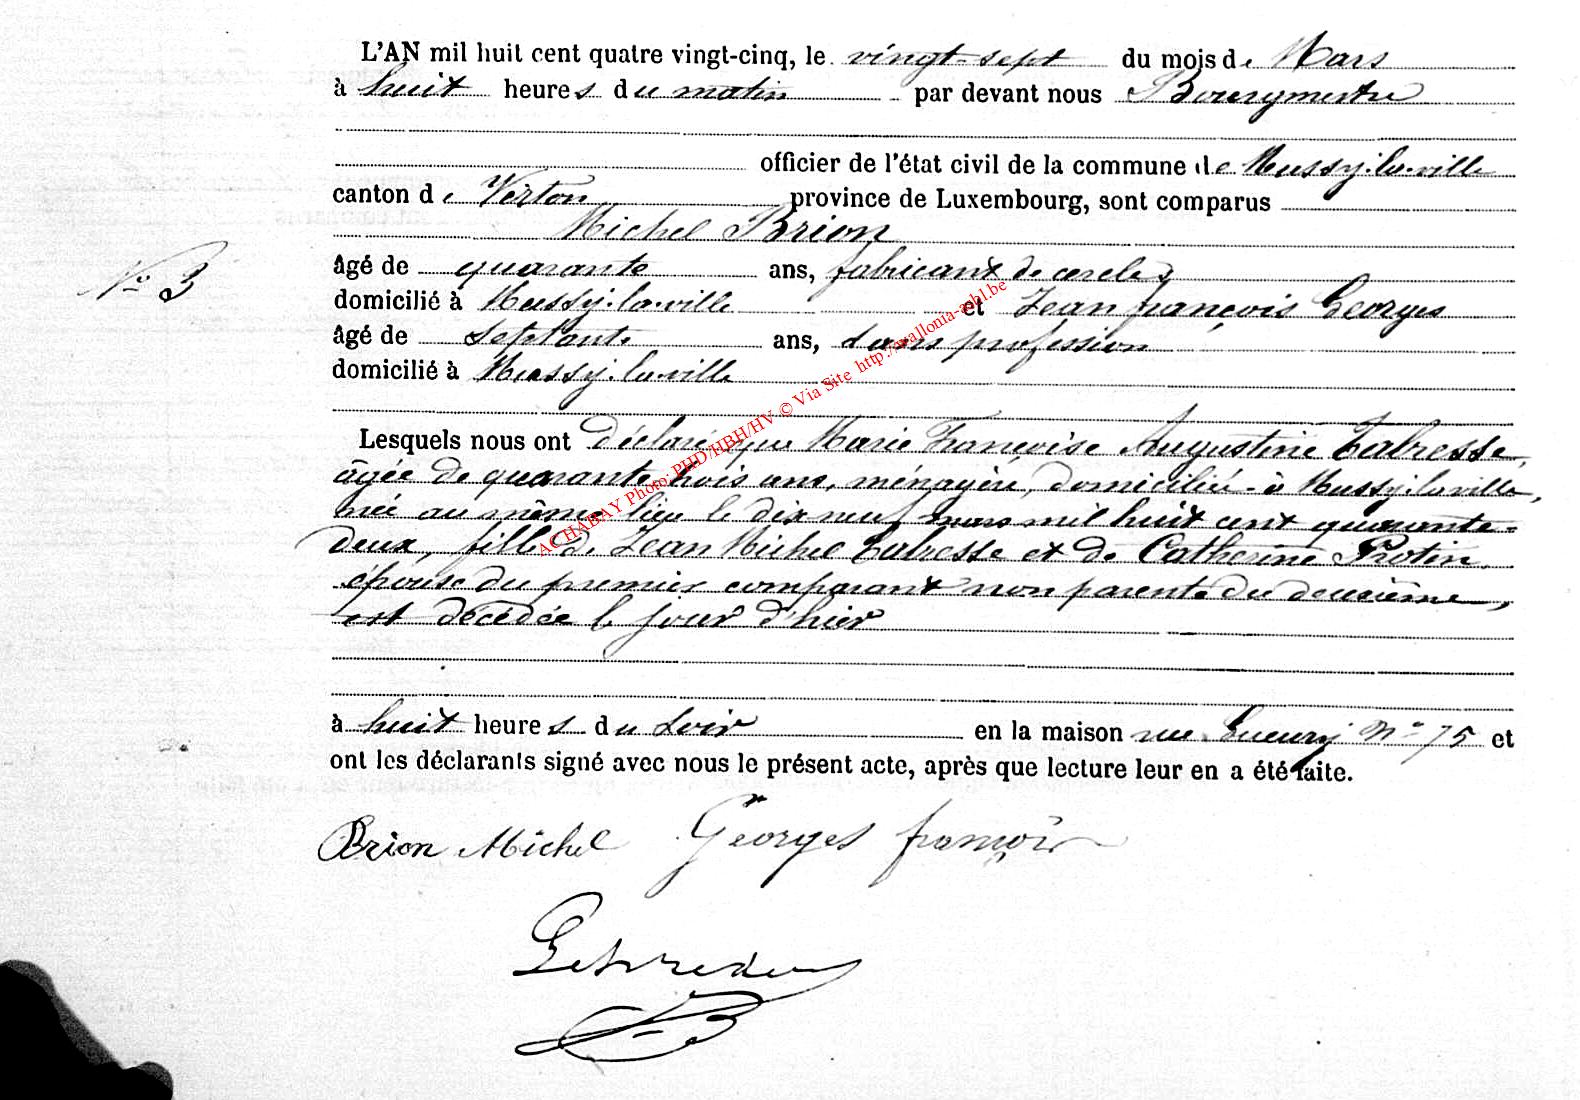 L'AN mil huit cent quatre vingt-cinq, le vingt-sept du mois de Mars
à huit heures du matin par devant nous Bourgmestre
officier de l'état civil de la commune de Mussy-la-ville
canton de Virton province de Luxembourg, sont comparus
Michel Brion
N° 3
âgé de quarante ans, fabricant de cercles
domicilié à Mussy-la-ville et Jean françois Georges
âgé de septante ans, sans profession
domicilié à Mussy-la-ville
Lesquels nous ont déclaré que Marie Françoise Augustine Labresse,
âgée de quarante trois ans, ménagère, domiciliée à Mussy-la-ville,
née au même lieu le dix neuf mars mil huit cent quarante-
deux, fille de Jean Michel Labresse et de Catherine Protin,
épouse du premier comparant non parente du deuxième,
est décédée le jour d'hier
à huit heures du soir en la maison rue N° 75 et
ont les déclarants signé avec nous le présent acte, après que lecture leur en a été faite.
Brion Michel Georges françois
ACHABAY Photo: PHD/HBH/HV © Via Site http://wallonia-asbl.be